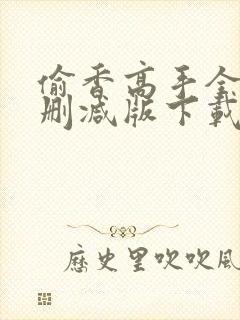 偷香高手全
删减版下载
历史里吹吹风